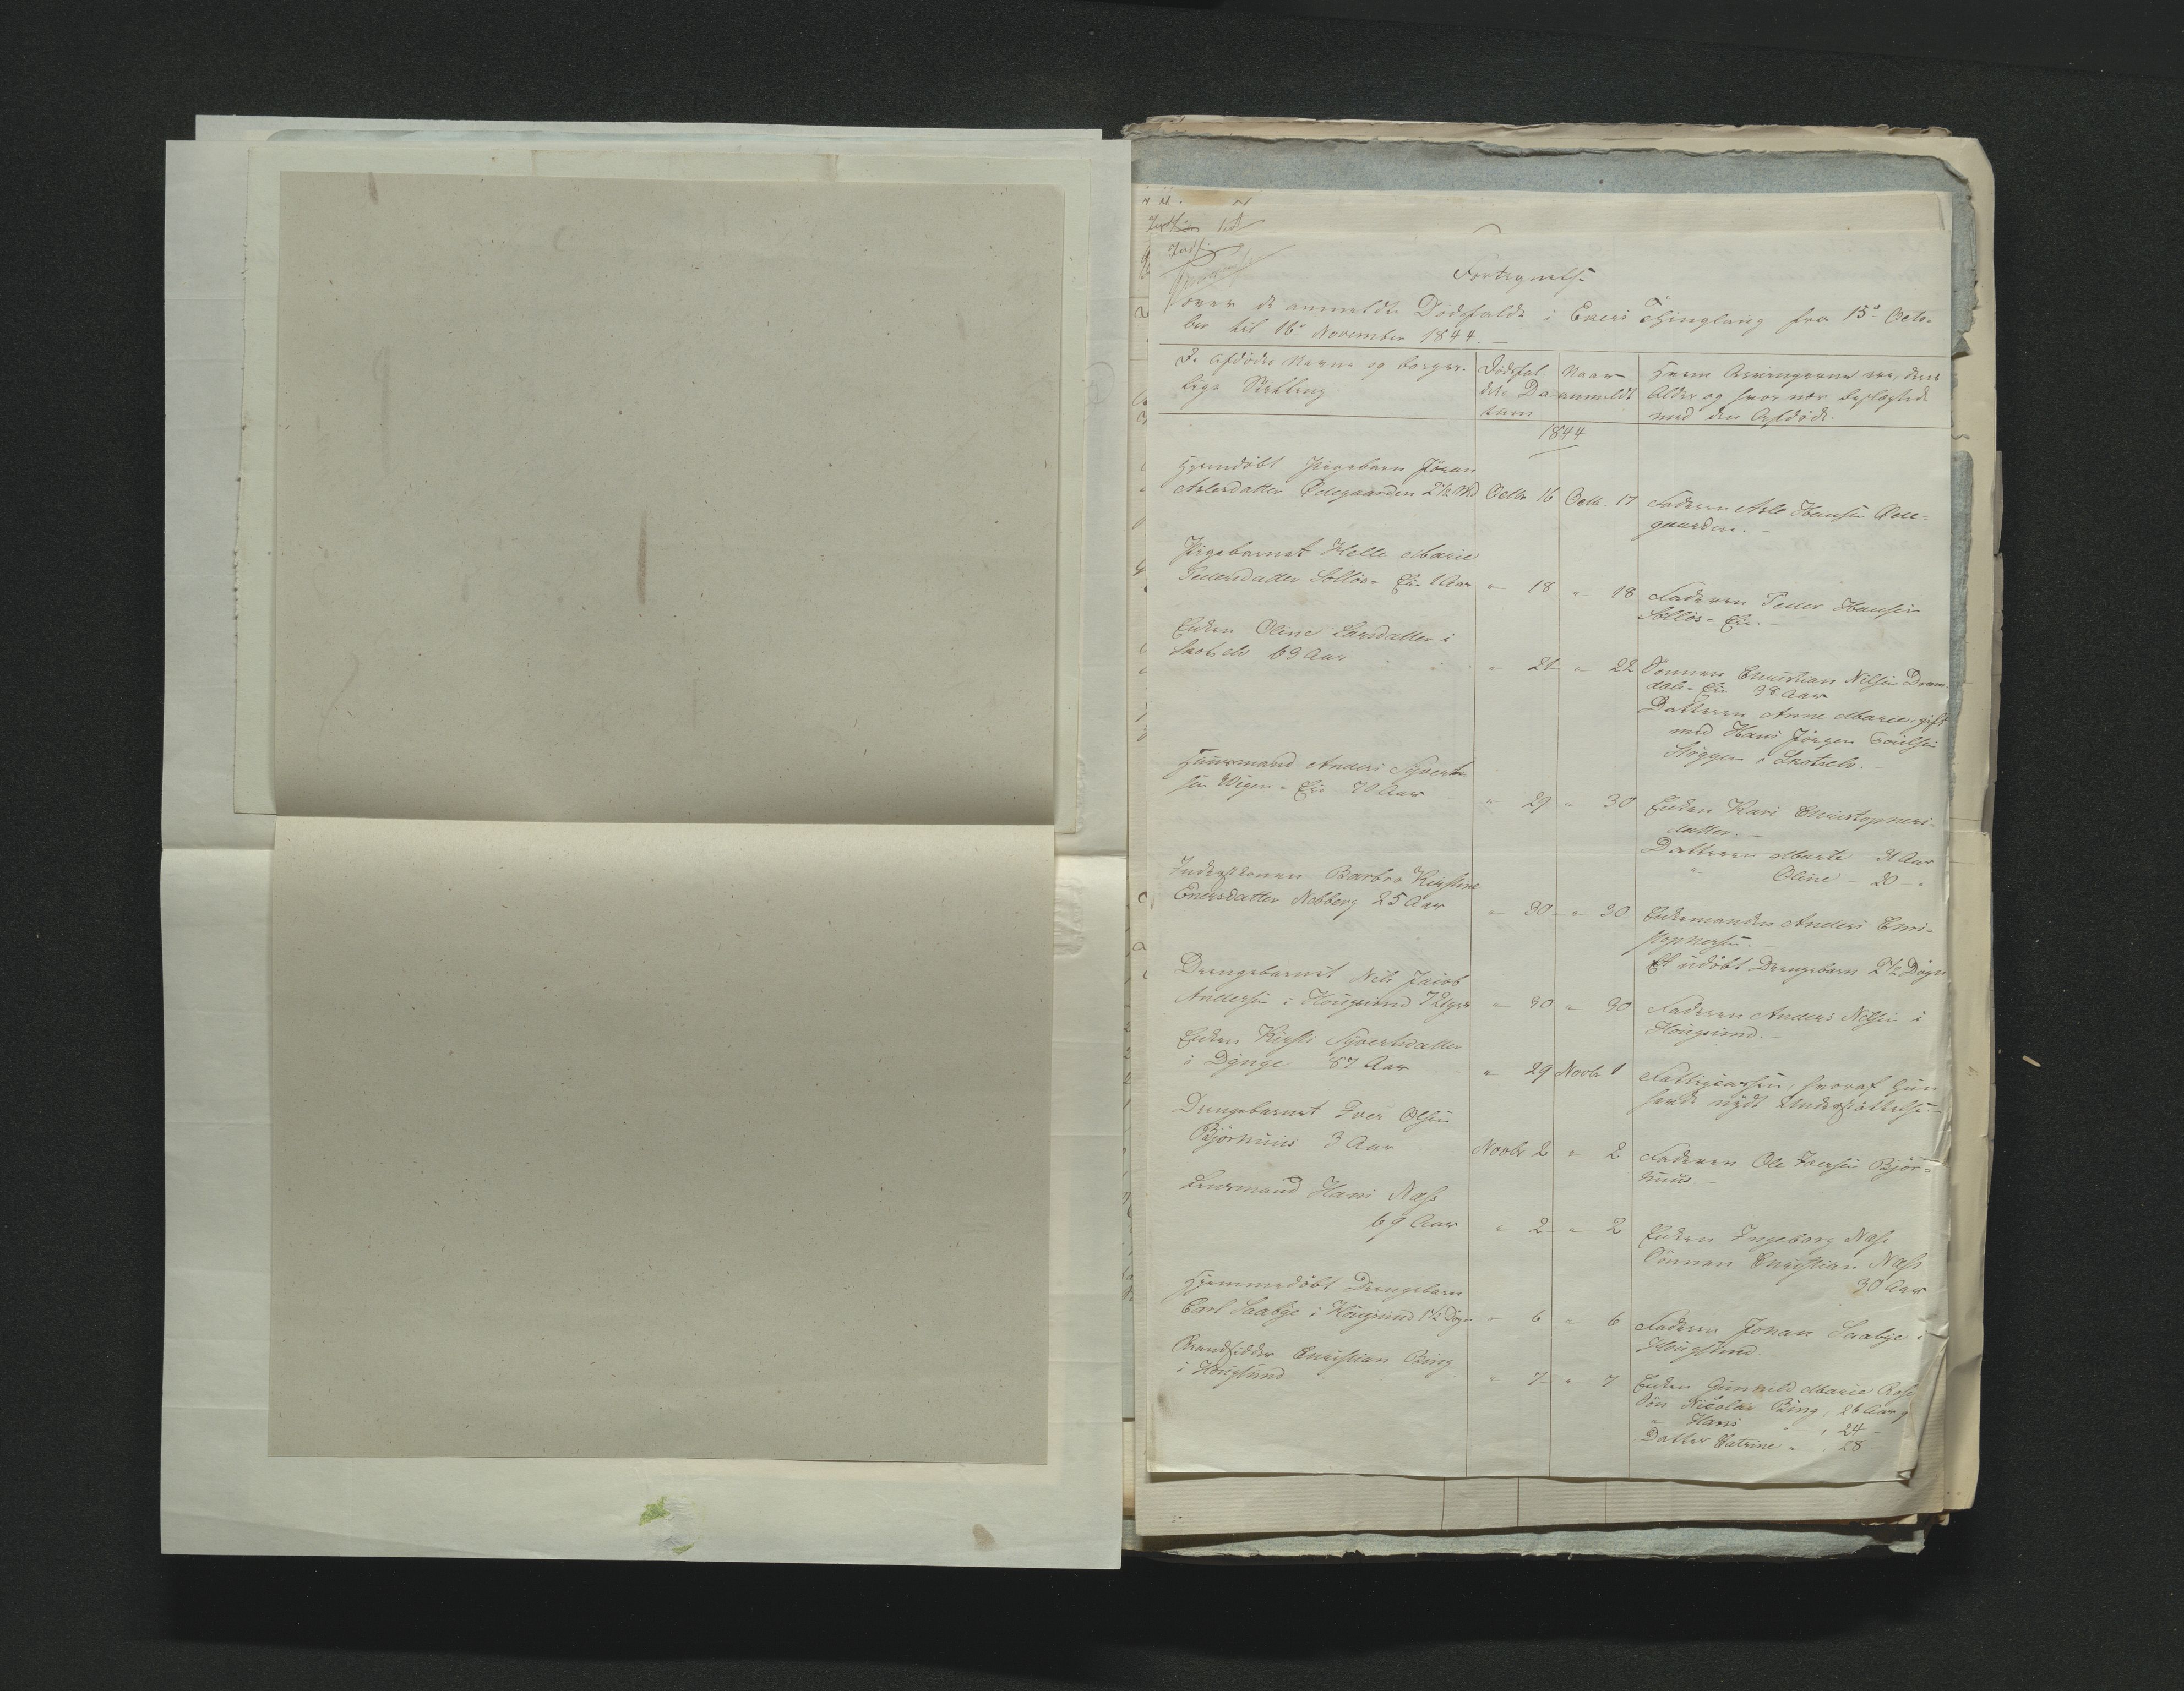 Fortegnelse
over de anmeldte Dødsfalde i Ekers Thinglaug fra 15de Octo-
ber til 16de November 1844.
De Afdødes Navne og borger-
lige Stilling
Dødsfal
dets Da
tum
Naar
anmeldt
Hvem Arvingerne ere, deres
Alder og hvor nær beslægtede
med den Afdøde.
1844
Hjemdøbt Pigebarn Jöran
Aslesdatter Ødegaarden 2½ Md Octbr 16 Octb. 17 Faderen Asle Hansen Øde-
gaarden.
Pigebarnet Helle Marie
Pedersdatter Sollös-Eie 1 Aar " 18 " 18 Faderen Peder Hansen
Söllös-Eie.
Enken Oline Larsdatter i
Skotselv 69 Aar " 21 " 22 Sønnen Christian Nilsen Dram-
dals-Eie 38 Aar
Datteren Anne Marie, gift
med Hans Jörgen
i Skotselv.
Huusmand Anders Syvert-
sen Wigen-Eie 70 Aar " 29 " 30 Enken Kari Christophers-
datter.
Datteren Marte 31 Aar
" Oline - 20 - "
Inderstkonen Barbro Kirstine
Enersdatter Nobberg 25 Aar " 30 " 30 Enkemanden Anders Chri-
stophersen.
Et udöbt Drengebarn 2½ Døgn
Drengebarnet Nils Jacob
Andersen i Hougsund 7 Uger " 30 " 30 Faderen Anders Nilsen i
Hougsund.
Enken Kirsti Syvertsdatter
i Dynge 87 Aar " 29 Novbr 1 Fattigcassen, hvoraf hun
havde nydt Understöttelse.
Drengebarnet Iver Olsen
Björnhuus 3 Aar Novbr 2 " 2 Faderen Ole Iversen Björn-
huus.
Leursmand Hans Næss
69 Aar " 2 " 2 Enken Ingeborg Næss
Sönnen Christian Næss
30 Aar
Hjemmedøbt Drengebarn
Carl Saabye i Hougsund 1½ Døgn " 6 " 6 Faderen Johan Saabye i
Hougsund.
Strandsidder Christian Bing
i Hougsund " 7 " 7 Enken Gunnild Marie
Sön Nicolai Bing, 26 Aar g
" Hans , 24 -
Datter Catrine " , 28 -